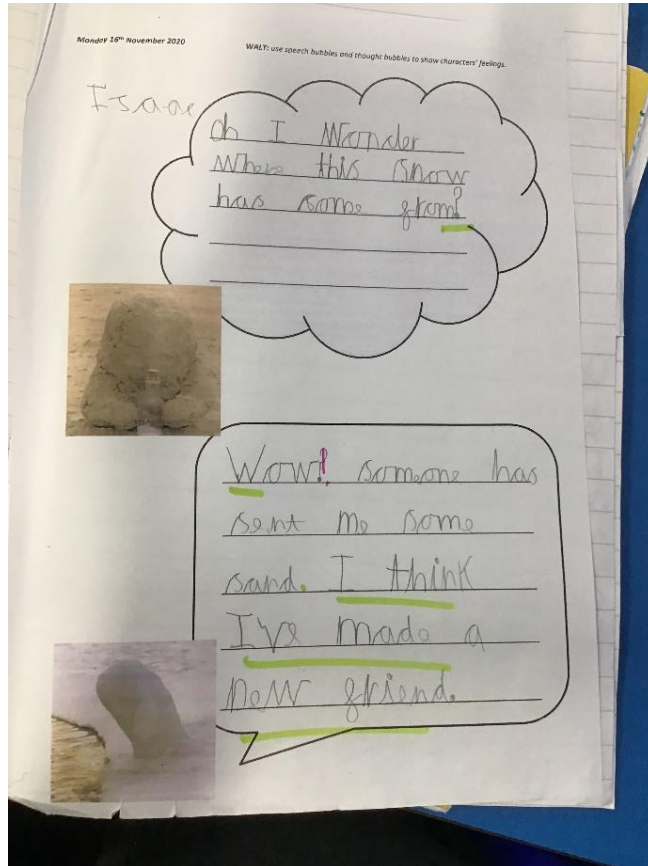 Monday 16th November 2020
WALT: use speech bubbles and thought bubbles to show characters' feelings.
Isaac
oh I Wonder
Where this snow
has some from?
Wow! someone has
sent me some
sand. I think
I've made a
new friend.